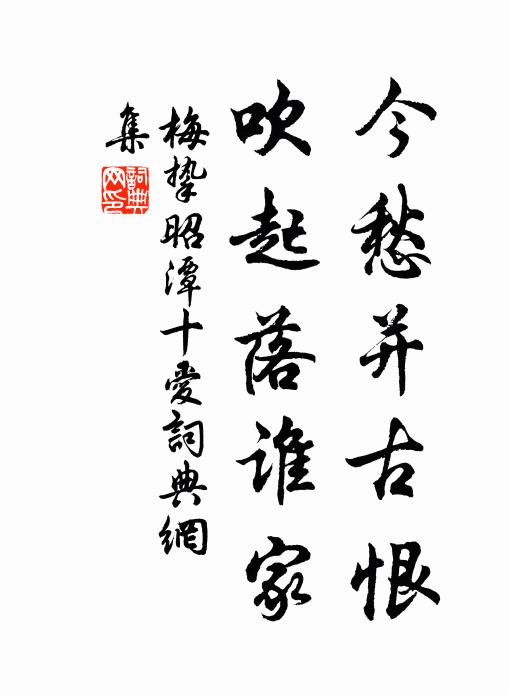 今愁并古恨
吹起落谁家
梅挚昭潭十愛詞典網
集
詞典
网印